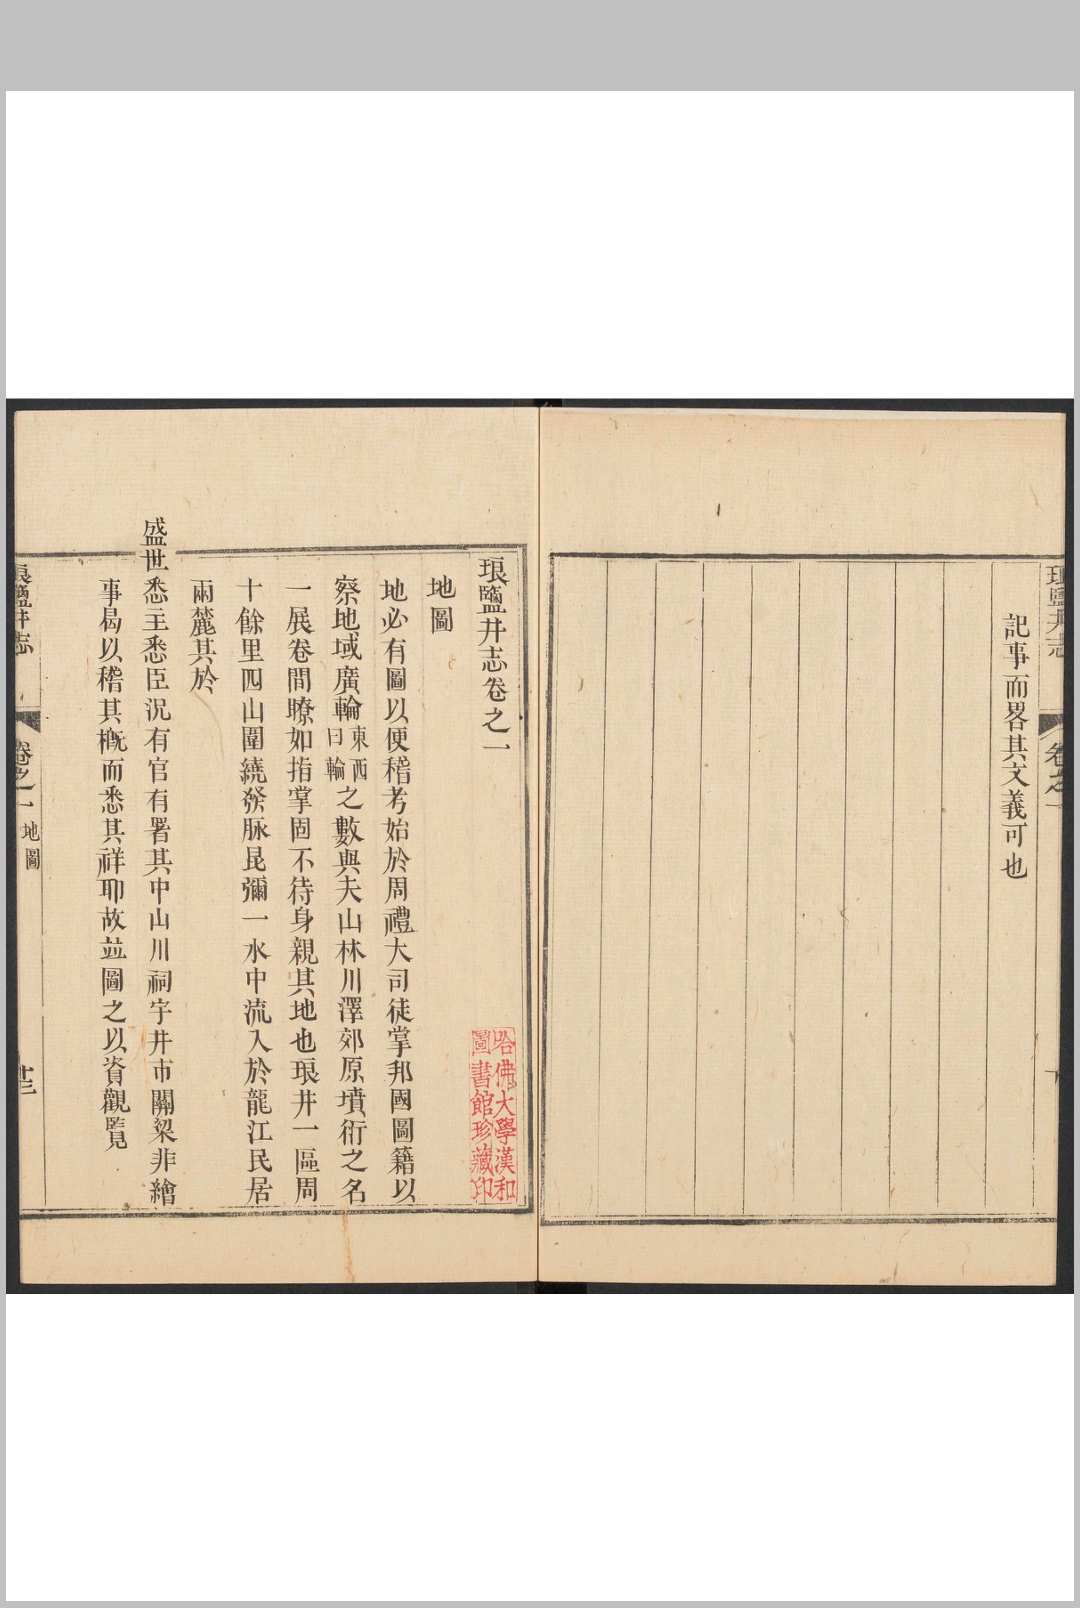 琅鹽井志
卷之一
記事而畧其文義可也
琅鹽井志卷之一
哈佛大學漢和
圖書館珍藏印
地圖
地必有圖以便稽考始於周禮大司徒掌邦國圖籍以
察地域廣輪東西曰輪之數與夫山林川澤郊原墳衍之名
一展卷間瞭如指掌固不待身親其地也琅井一區周
十餘里四山圍繞發脉昆彌一水中流入於龍江民居
兩麓其於
盛世悉主悉臣況有官有署其中山川祠宇井市關梁非繪
事曷以稽其槪而悉其祥耶故並圖之以資觀覽
琅鹽井志
卷之一
地圖
十三